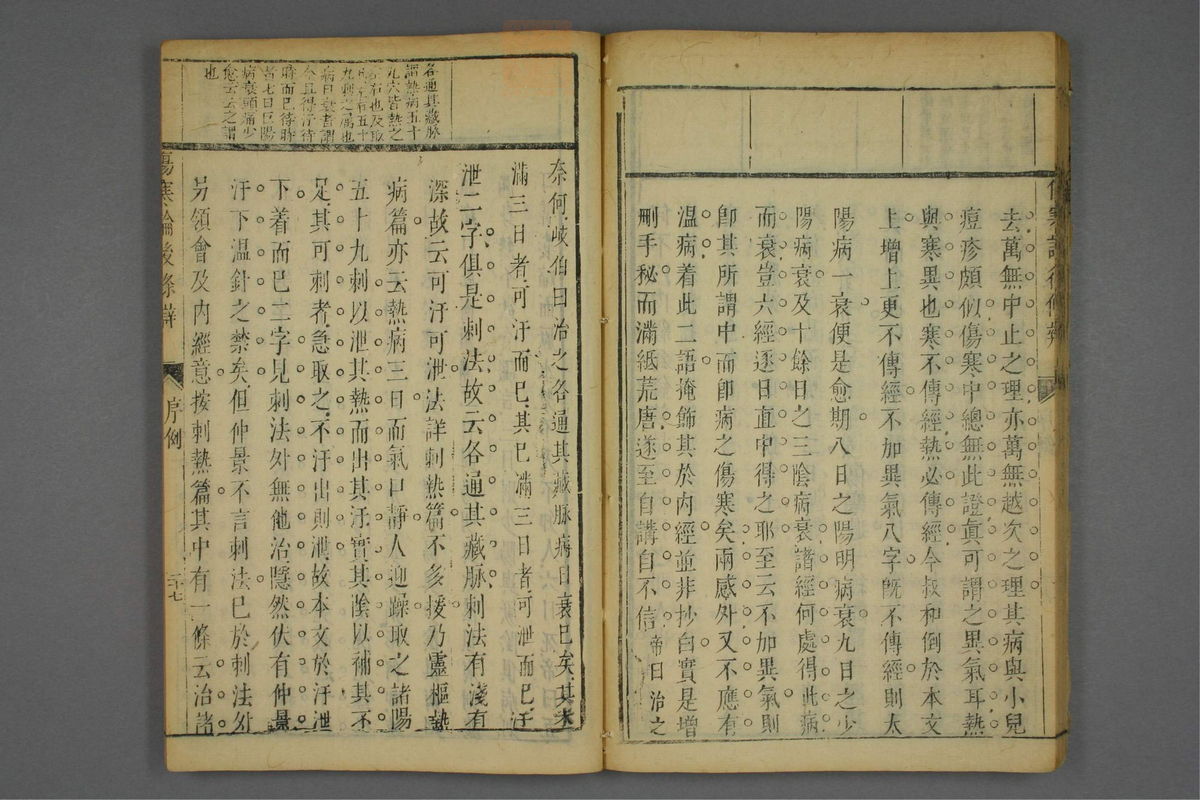 去萬無中止之理亦萬無越次之理其病與小兒
痘疹頗似傷寒中總無此證眞可謂之異氣耳熱
與寒異也寒不傳經熱必傳經今叔和倒於本文
上增上更不傳經不加異氣八字旣不傳經則太
陽病一衰便是愈期八日之陽明病衰九日之少
陽病衰及十餘日之三陰病衰諸經何處得此病
而衰豈六經逐日直中得之耶至云不加異氣則
卽其所謂中而卽病之傷寒矣兩感外又不應有
溫病着此二語掩飾其於內經並非抄白實是增
刪手秘而滿紙荒唐遂至自講自不信帝曰治之
各通其藏脉
謂熱病五十
九穴皆熱之
左右也及取
五十
九刺之屬也
病日衰者謂
今且得汗待
時而已待時
者七日巨陽
病衰頭痛少
愈云云之謂
也
奈何岐伯曰治之各通其藏脉病日衰已矣其未
滿三日者可汗而已其已滿三日者可泄而已汗
泄二字俱是刺法故云各通其藏脉刺法有淺有
深故云可汗可泄法詳刺熱篇不多援乃靈樞熱
病篇亦云熱病三日而氣口靜人迎躁取之諸陽
五十九刺以泄其熱而出其汗實其陰以補其不
足其可刺者急取之不汗出則泄故本文於汗泄
下着而已二字見刺法外無他治隱然伏有仲景
汗下溫針之禁矣但仲景不言刺法已於刺法外
另領會及內經意按刺熱篇其中有一條云治諸
傷寒論後條辯
序例
三十七